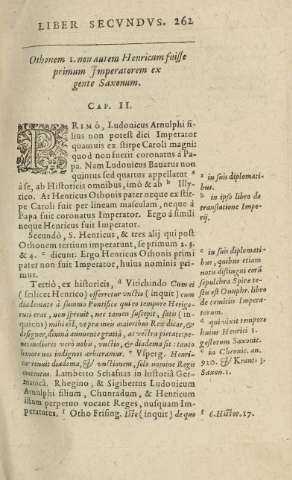 LIBER SECVNDVS. 262
Othonem 1. non autem Henricum fuisse
primum Imperatorem ex
gente Saxonum.
CAP. II.
PRIMò, Ludouicus Arnulphi fi-
lius non potest dici Imperator
quamuis ex stirpe Caroli magni
quod non fuerit coronatus à Pa-
pa. Nam Ludouicus Bauarus non
quintus sed quartus appellatur a
à se, ab Historicis omnibus, imò & ab b Illy-
rico. At Henricus Othonis pater neque ex stir-
pe Caroli fuit per lineam masculam, neque à
Papa fuit coronatus Imperator. Ergo à simili
neque Henricus fuit Imperator.
Secundò, S. Henricus, & tres alij qui post
Othonem tertium imperarunt, se primum 2. 3.
& 4. c dicunt. Ergo Henricus Othonis primi
pater non fuit Imperator, huius nominis pri-
mus.
Tertiò, ex historicis, d Vitichindo Cum ei
(scilicet Henrico) offerretur vnctio (inquit) cum
diademate à summo Pontifice qui eo tempore Herige-
rus erat, non spreuit, nec tamen suscepit, satis (in-
quiens) mihi est, vt præ meis maioribus Rex dicar, &
designer, diuina annuente gratia, ac vestra pietate; pe-
nes meliores verò nobis, vnctio, & diadema sit: tanto
honore nos indignos arbitramur. e Vsperg. Henri-
cus renuit diadema, & vnctionem, solo nomine Regis
contentus. Lamberto Schafnas in historiâ Ger-
manicâ. Rhegino, & Sigibertus Ludouicum
Arnulphi filium, Chunradum, & Henricum
illum perpetuo vocant Reges, nusquam Im-
peratores. f Otho Frising. Iste (inquit) de quo
a in suis diplomati-
bus.
b in ipso libro de
translatione Impe-
rij.
c in suis diplomati-
bus, quibus etiam
de comitijs Impera-
torum.
d qui vixit tempore
huius Henrici 1.
gestorum Saxonic.
e in Chronic. an.
920. & Krantz 3.
Saxon. 1.
f 6. Histor. 17.